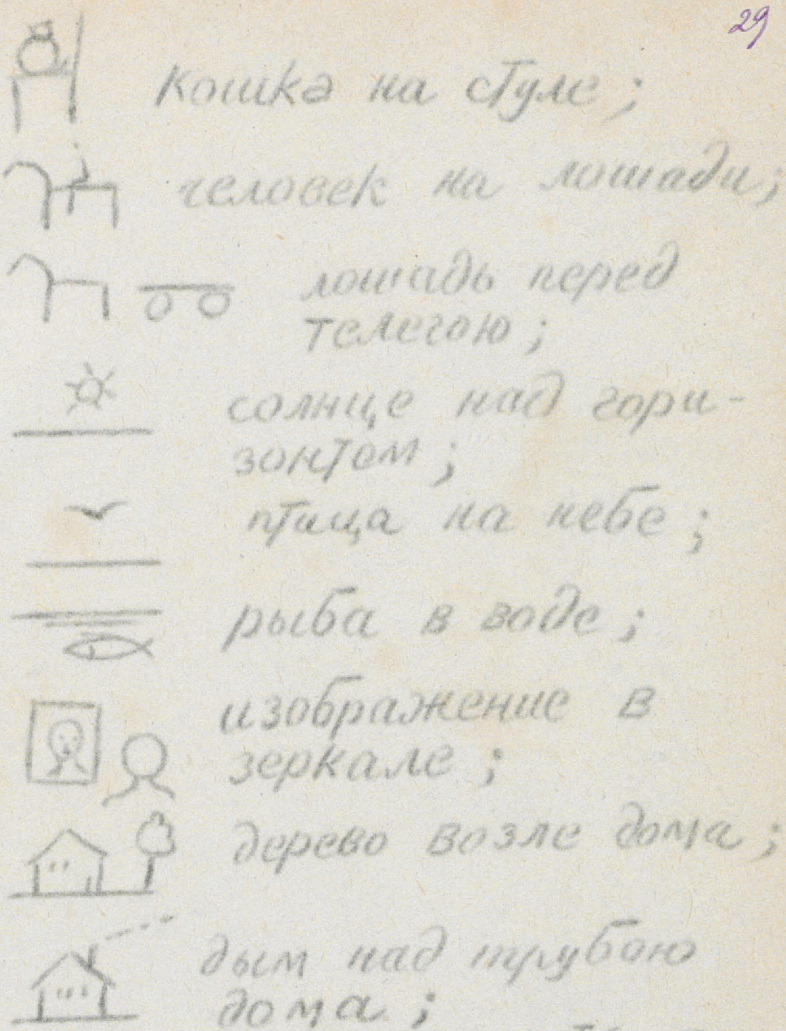 29
кошка на стуле;
человек на лошади;
лошадь перед
телегою;
солнце над гори-
зонтом;
птица на небе;
рыба в воде;
изображение в
зеркале;
дерево возле дома;
дым над трубою
дома;